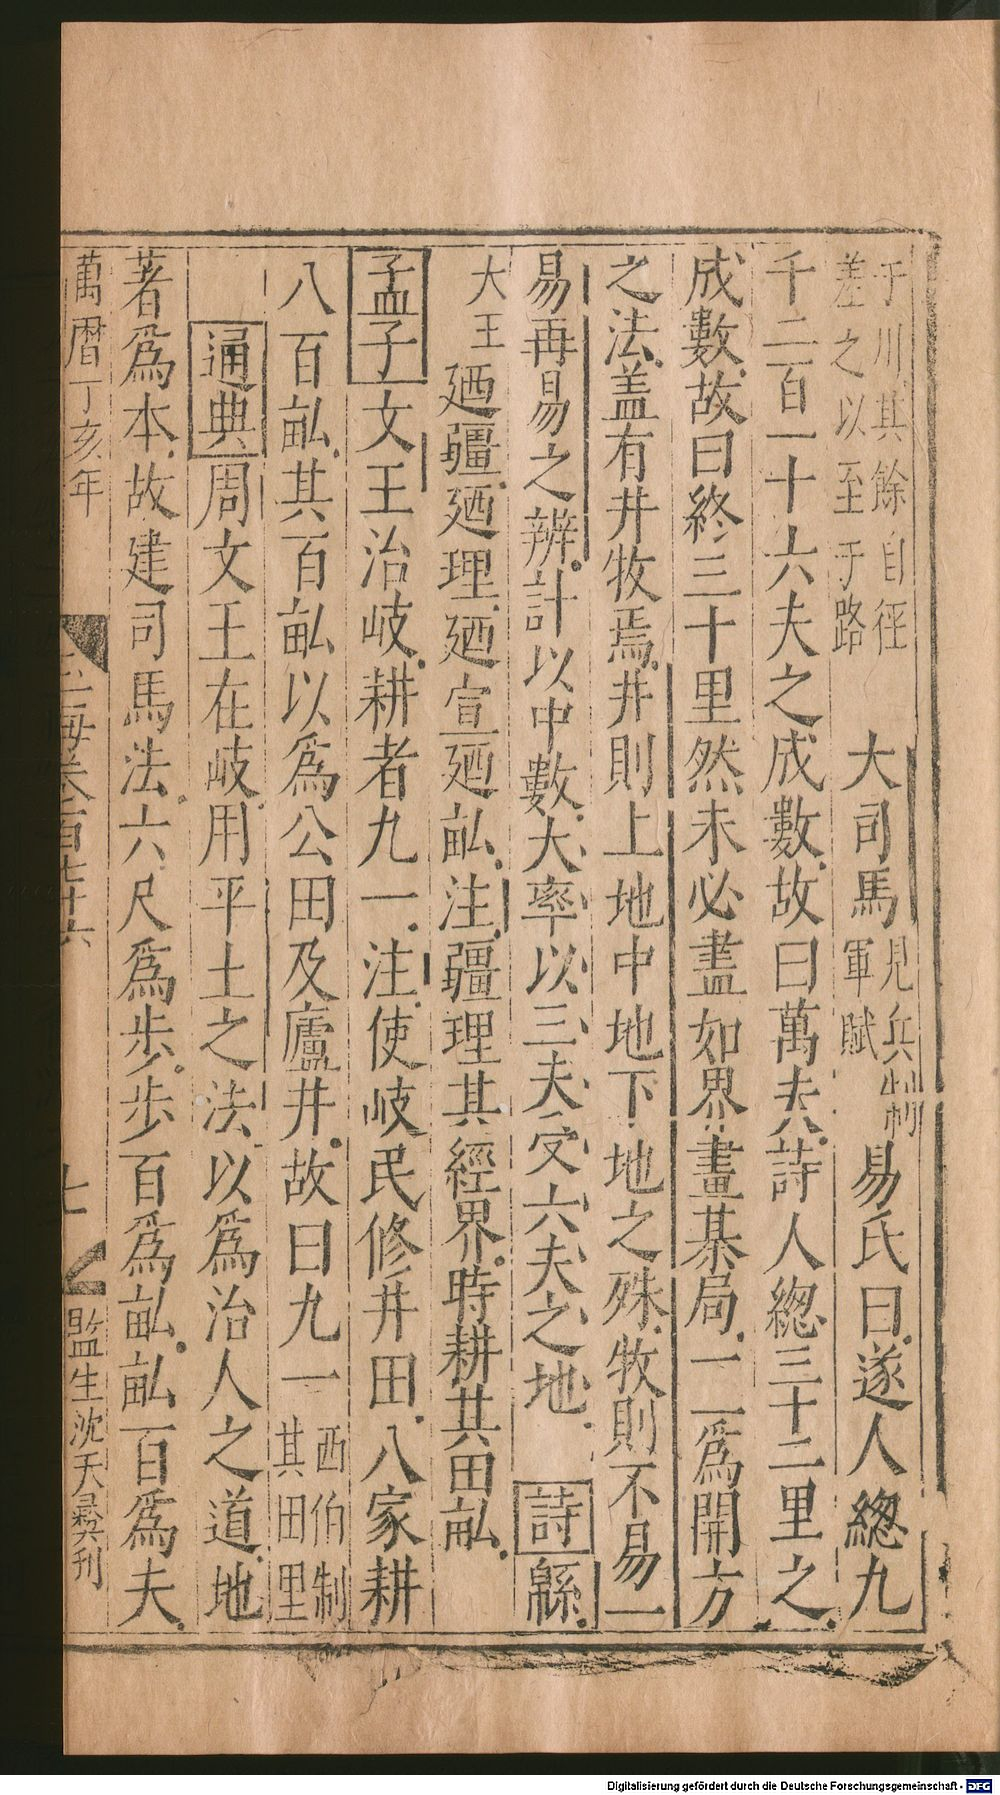 于川其餘自徑
差之以至于路
大司馬
見兵制
軍賦
易氏曰遂人緫九
千二百一十六夫之成數故曰萬夫詩人緫三十二里之
成數故曰終三十里然未必盡如界畫棊局一一爲開方
之法盖有井牧焉井則上地中地下地之殊牧則不易一
易再易之辨計以中數大率以三夫受六夫之地 詩緜
大王
廼疆廼理廼宣廼畝注疆理其經界時耕其田畝
孟子文王治岐耕者九一注使岐民修井田八家耕
八百畝其百畝以爲公田及廬井故曰九一
西伯制
其田里
通典周文王在岐用平土之法以爲治人之道地
著爲本故建司馬法六尺爲步步百爲畝畝百爲夫
萬曆丁亥年
玉海卷百七十六
七
監生沈天彞刊
Digitalisierung gefördert durch die Deutsche Forschungsgemeinschaft - DFG